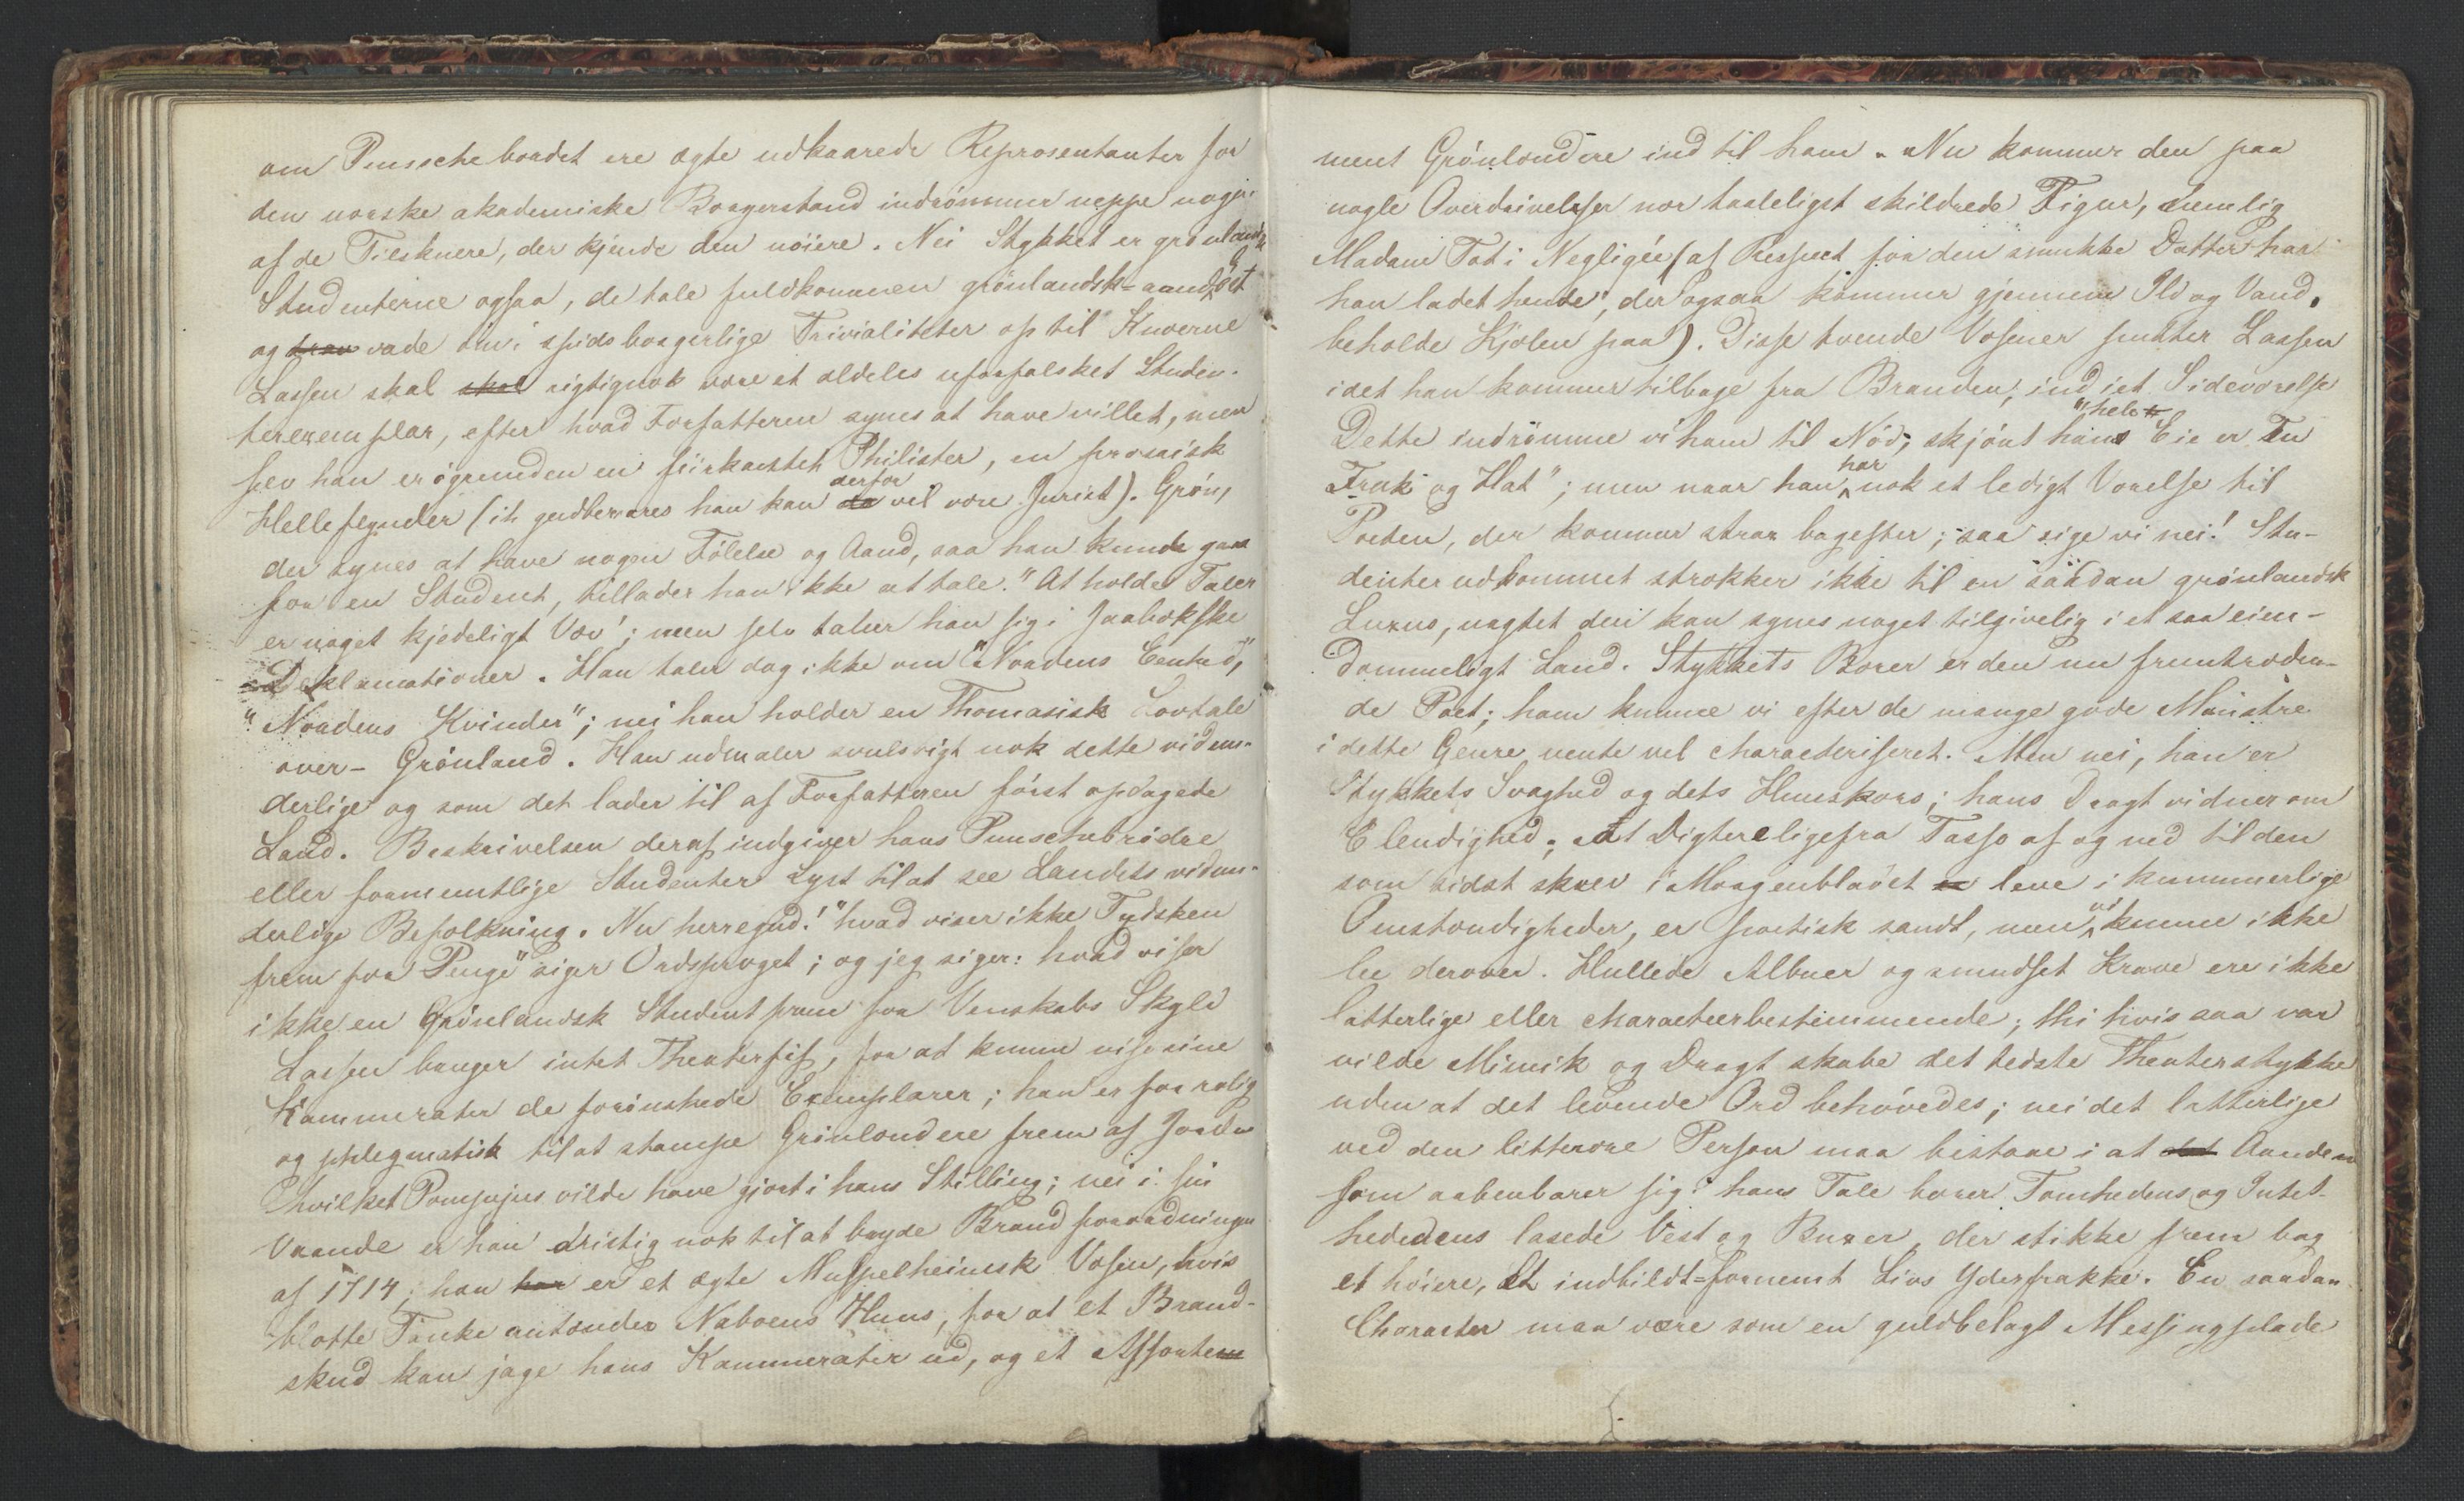 om Punschebordet ere ægte udkaarede Repræsentanter for
den norske akademiske Borgerstand indrömmer neppe nogen
af de Tilskuere, der kjende den nöiere. Nei Stykket er grönlandsk
Studenterne ogsaa, de tale fuldkommen grönlandsk-aandlöst
og vade om i spidsborgerlige Trivialiteter op til Knæerne
Lassen skal skal rigtignok være et aldeles uforfalsket Studen-
terexemplar, efter hvad Forfatteren synes at have villet, men
selv han er igrunden en fiirkantet Philister, en prosaisk
Helleflynder (ih gudbevares han kan da derfor vel være Jurist). Grön,
der synes at have nogen Fölelse og Aand, saa han kunde gaae
for en Student, tillader han ikke at tale. "At holde Taler
er noget kjedeligt Væv"; men selv taler han sig i
Deklamationer. Han taler dog ikke om "Nordens Eenhed,"
"Nordens Kvinder"; nei han holder en Thomasisk Lovtale
over - Grönland. Han udmaler svulstigt nok dette vidun-
derlige og som det lader til af Forfatteren först opdagede
Land. Beskrivelsen deraf indgiver hans Punschebrödre
eller formentlige Studenter Lyst til at see Landets vidun-
derlige Befolkning. Nu herregud! "hvad viser ikke Tydsken
frem for Penge" siger Ordsproget; og jeg siger: hvad viser
ikke en Grönlandsk Student frem for Venskabs Skyld
Lassen bruger intet Theaterfif, for at kunne vise sine
Kammerater de forönskede Exemplarer; han er for rolig
og phlegmatisk til at stampe Grönlændere frem af Jorden
hvilket Pompejus vilde have gjort i hans Stilling; nei i sin
Vaande er han dristig nok til at bryde Brandforordningen
af 1714; han har er et ægte Muspelheimsk Væsen, hvis
blotte Tanke antænder Naboens Huus, for at et Brand-
skud kan jage hans Kammerater ud, og et Assorte
ment Grönlændere ind til ham. Nu kommer den paa
nogle Overdrivelser nær taaleligst skildrede Figur, nemlig
Madam Fat i Negligée (af Respect for den smukke Datter har
han ladet hende, der ogsaa kommer gjennem Ild og Vand,
beholde Kjolen paa). Disse tvende Væsener putter Lassen
idet han kommer tilbage fra Branden, ind i et Sideværelse
Dette indrömme vi ham til Nöd, skjönt hans "hele Eie er En
Frak og Hat"; men naar han har nok et ledigt Værelse til
Poeten, der kommer strax bagefter; saa sige vi nei! Stu-
denterudkommet strækker ikke til en saadan grönlandsk
Luxus, uagtet den kan synes noget tilgivelig i et saa eien-
dommeligt Land. Stykkets Bærer er den nu fremtræden-
de Poet; ham kunne vi efter de mange gode Mönstre
i dette Genre vente vel characteriseret. Men nei, han er
Stykkets Svaghed og dets Huuskors; hans Dragt vidner om
Elendighed; At Digtere ligefra Tasso af og ned til den
som sidst skrev i Morgenbladet leve i kummerlige
Omstændigheder, er poetisk sandt, men vi kunne ikke
lee derover. Hullede Albuer og smudset Krave ere ikke
latterlige eller characteerbestemmende; thi hvis saa var
vilde Mimik og Dragt skabe det bedste Theaterstykke
uden at det levende Ord behövedes; nei det latterlige
ved den litterære Person maa bestaae i at det Aanden
som aabenbarer sig i hans Tale bærer Tomhedens og Intet-
hedens lasede Vest og Buxer, der stikke frem bag
et höiere, et indbildt-fornemt Livs Yderfrakke. En saadan
Character maa være som en guldbelagt Messingplade